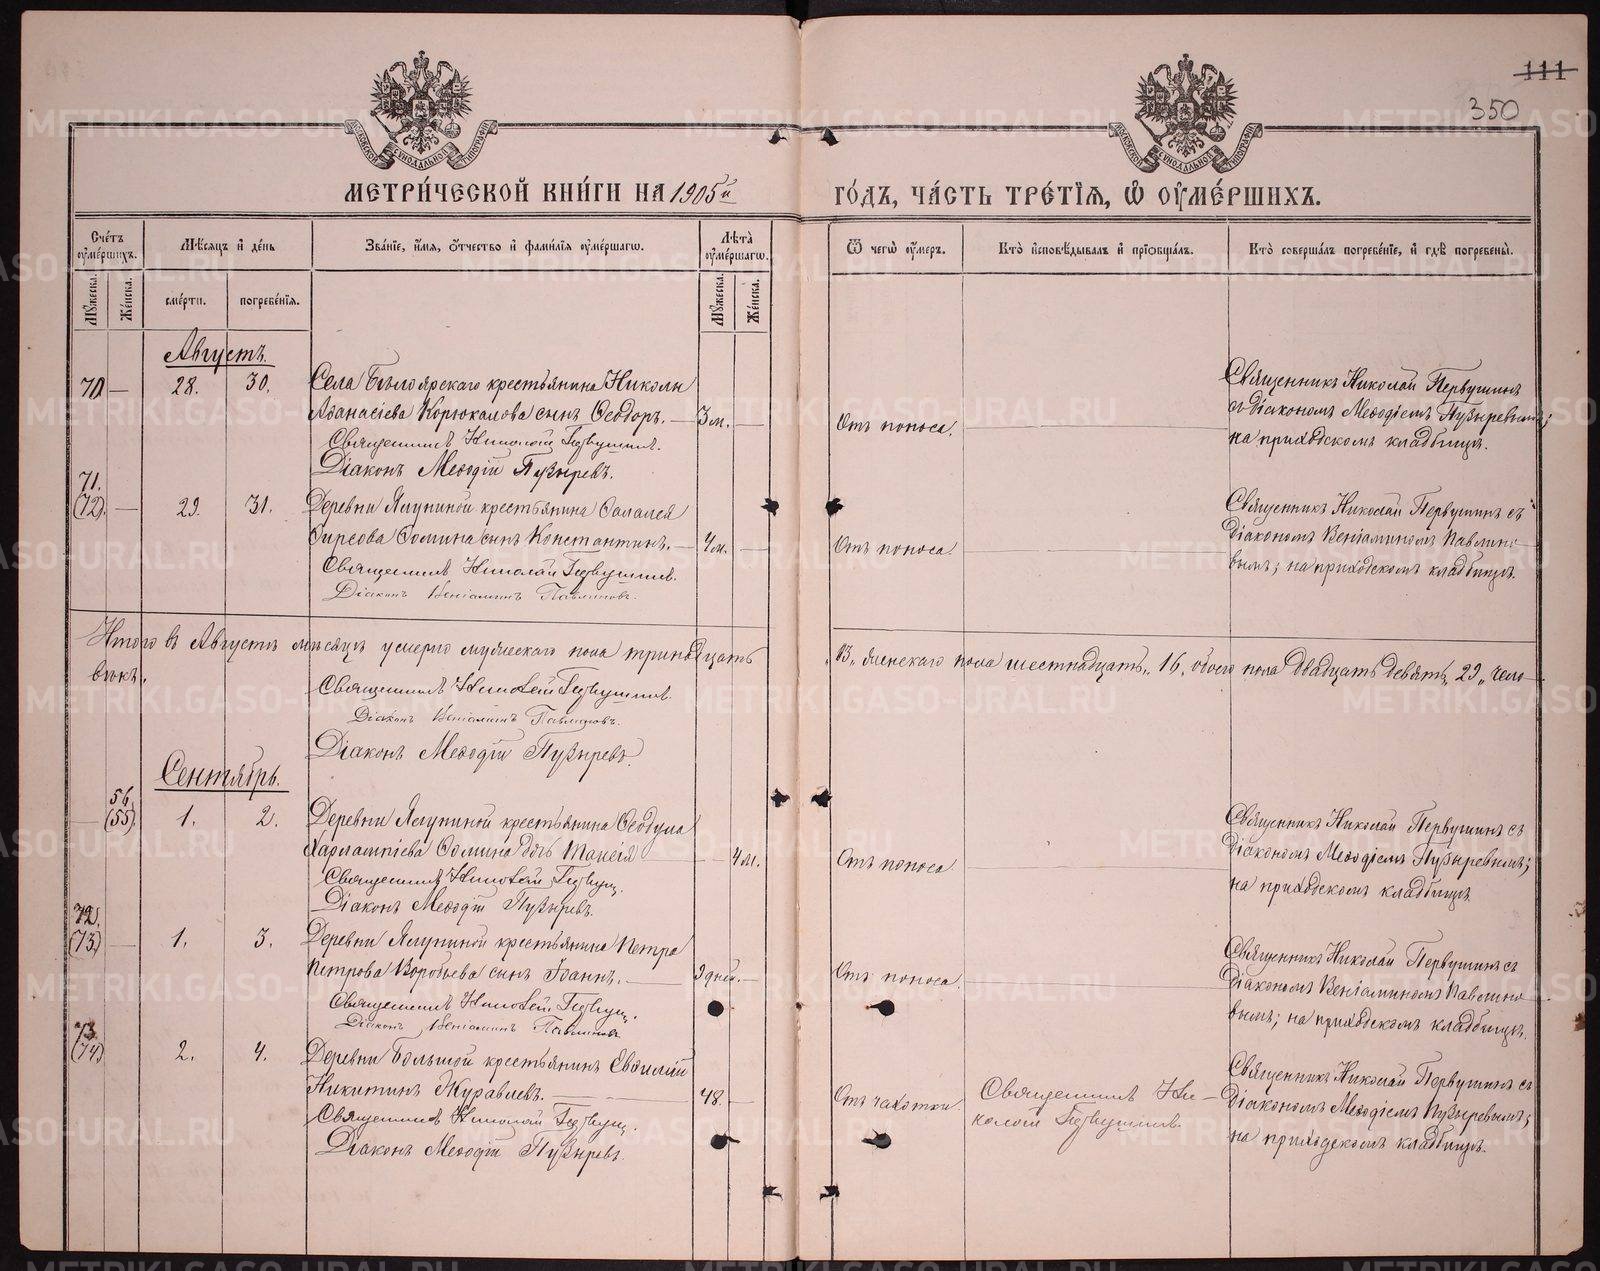 111
350
МОСКОВСКОЙ СѴНОДАЛЬНОЙ ТИПОГРАФІИ
МОСКОВСКОЙ СѴНОДАЛЬНОЙ ТИПОГРАФІИ
МЕТРИ́ЧЕСКОЙ КНИ́ГИ НА 1905й ГО́ДЪ, ЧА́СТЬ ТРЕ́ТІЯ, Ѽ ОУМЕ́РШИХЪ.
Сче́тъ оуме́ршихъ.
Мѣ́сяцъ и де́нь
Зва́ніе, и́мя, о́тчество и фами́лія оуме́ршагѡ.
Лѣ́та оуме́ршагѡ.
Ѿ чегѡ̀ оу́меръ.
Кто̀ исповѣ́дывалъ и пріобща́лъ.
Кто̀ соверша́лъ погребе́ніе, и гдѣ̀ погребены̀.
Му́жеска.
Же́нска.
сме́рти.
погребе́нія.
Му́жеска.
Же́нска.
Августъ.
70 — 28. 30.
Села Бѣлоярскаго крестьянина Николы
Аѳанасіева Корюкалова сынъ Ѳеодоръ. — 3 м. —
Священникъ Николай Первушинъ.
Діаконъ Меѳодій Пузыревъ.
Отъ поноса.
Священникъ Николай Первушинъ
съ діакономъ Меѳодіемъ Пузыревымъ;
на приходскомъ кладбищѣ.
71.
(72). — 29. 31.
Деревни Ялуниной крестьянина
Ѳомина сынъ Константинъ. — 4 м. —
Священникъ Николай Первушинъ.
Діаконъ Веніаминъ Павлиновъ.
Отъ поноса
Священникъ Николай Первушинъ съ
діакономъ Веніаминомъ Павлино-
вымъ; на приходскомъ кладбищѣ.
Итого въ Августѣ мѣсяцѣ умерло мужескаго пола тринадцать „13„ женскаго пола шестнадцать „16„ обоего пола двадцать девять „29„ чело-
вѣкъ.
Священникъ Николай Первушинъ.
Діаконъ Веніаминъ Павлиновъ.
Діаконъ Меѳодій Пузыревъ.
Сентябрь.
56
(55) 1. 2.
Деревни Ялуниной крестьянина Ѳеодула
Харлампіева Ѳомина дочь Таисія — 4 м.
Священникъ Николай Первуш.
Діаконъ Меѳодій Пузыревъ.
Отъ поноса
Священникъ Николай Первушинъ съ
діакономъ Меѳодіемъ Пузыревымъ;
на приходскомъ кладбищѣ
72.
(73) — 1. 3.
Деревни Ялуниной крестьянина Петра
Петрова Воробьева сынъ Іоаннъ. — 9 дней. —
Священникъ Николай Первуш.
Діаконъ Веніаминъ Павлиновъ
Отъ поноса.
Священникъ Николай Первушинъ съ
діакономъ Веніаминомъ Павлино-
вымъ; на приходскомъ кладбищѣ.
73.
(74) 2. 4.
Деревни Большой крестьянинъ
Никитинъ Журавлевъ. — 48. —
Священникъ Николай Первуш.
Діаконъ Меѳодій Пузыревъ.
Отъ чахотки.
Священникъ Ни-
колай Первушинъ.
Священникъ Николай Первушинъ съ
діакономъ Меѳодіемъ Пузыревымъ;
на приходскомъ кладбищѣ.
METRIKI.GASO-URAL.RU